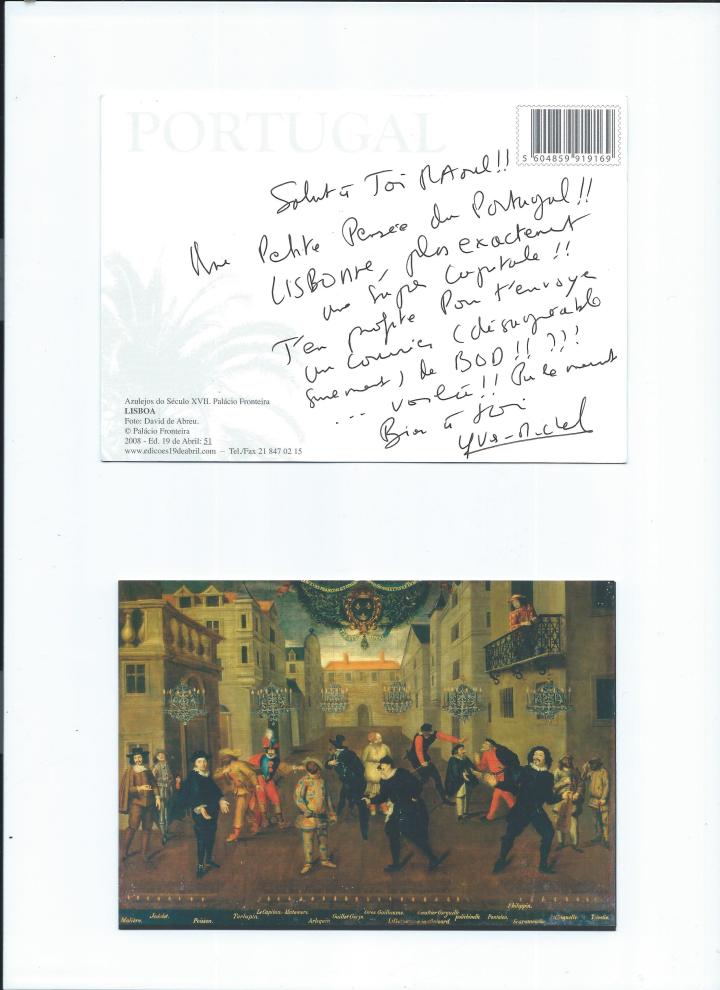 PORTUGAL
5 604859 919169
Salut à Toi RAoul!!
Une Petite Pensée du Portugal!!
LISBONNE, plus exactement
une super capitale!!
J'en profite Pour t'envoyer
un courrier (désagréable
) de BOD!! ??!
... voilà!!
Bien à toi
Yves-Michel
Azulejos do Século XVII. Palácio Fronteira
LISBOA
Foto: David de Abreu.
© Palácio Fronteira
2008 - Ed. 19 de Abril: 51
www.edicoes19deabril.com – Tel./Fax 21 847 02 15
Molière. Jodelet. Poisson. Turlupin. Le Capitan Matamore. Arlequin. Guillot Gorju. Gros Guillaume. Gaultier Garguille. Polichinelle. Pantalon. Philippin. Scaramouche. Briguelle. Trivelin.